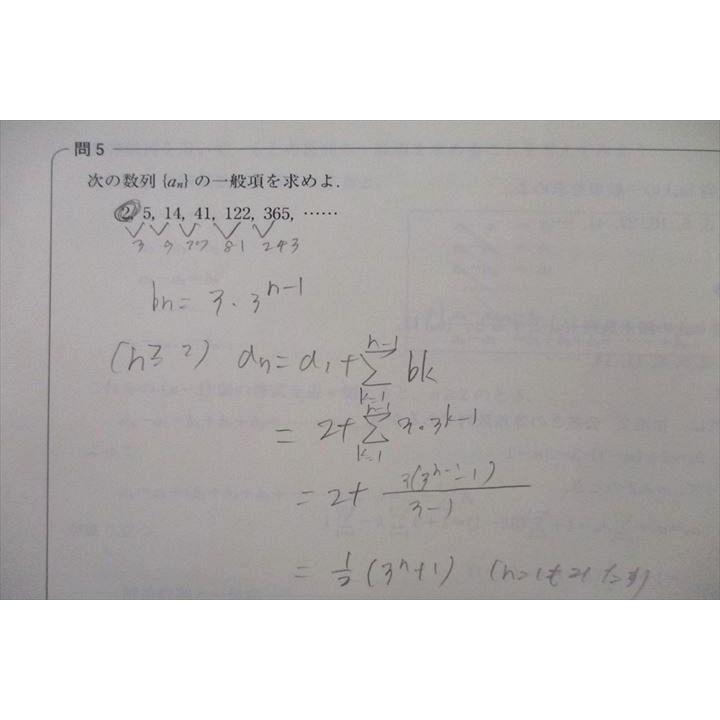 問5
次の数列{aₙ}の一般項を求めよ.
2, 5, 14, 41, 122, 365, ……
3 9 27 81 243
bn = 3・3^{n-1}
(n≧2) an = a₁ + \sum_{k=1}^{n-1} bk
= 2+ \sum_{k=1}^{n-1} 3・3^{k-1}
= 2+ \frac{3(3^{n-1}-1)}{3-1}
= \frac{1}{2} (3^n+1) (n=1